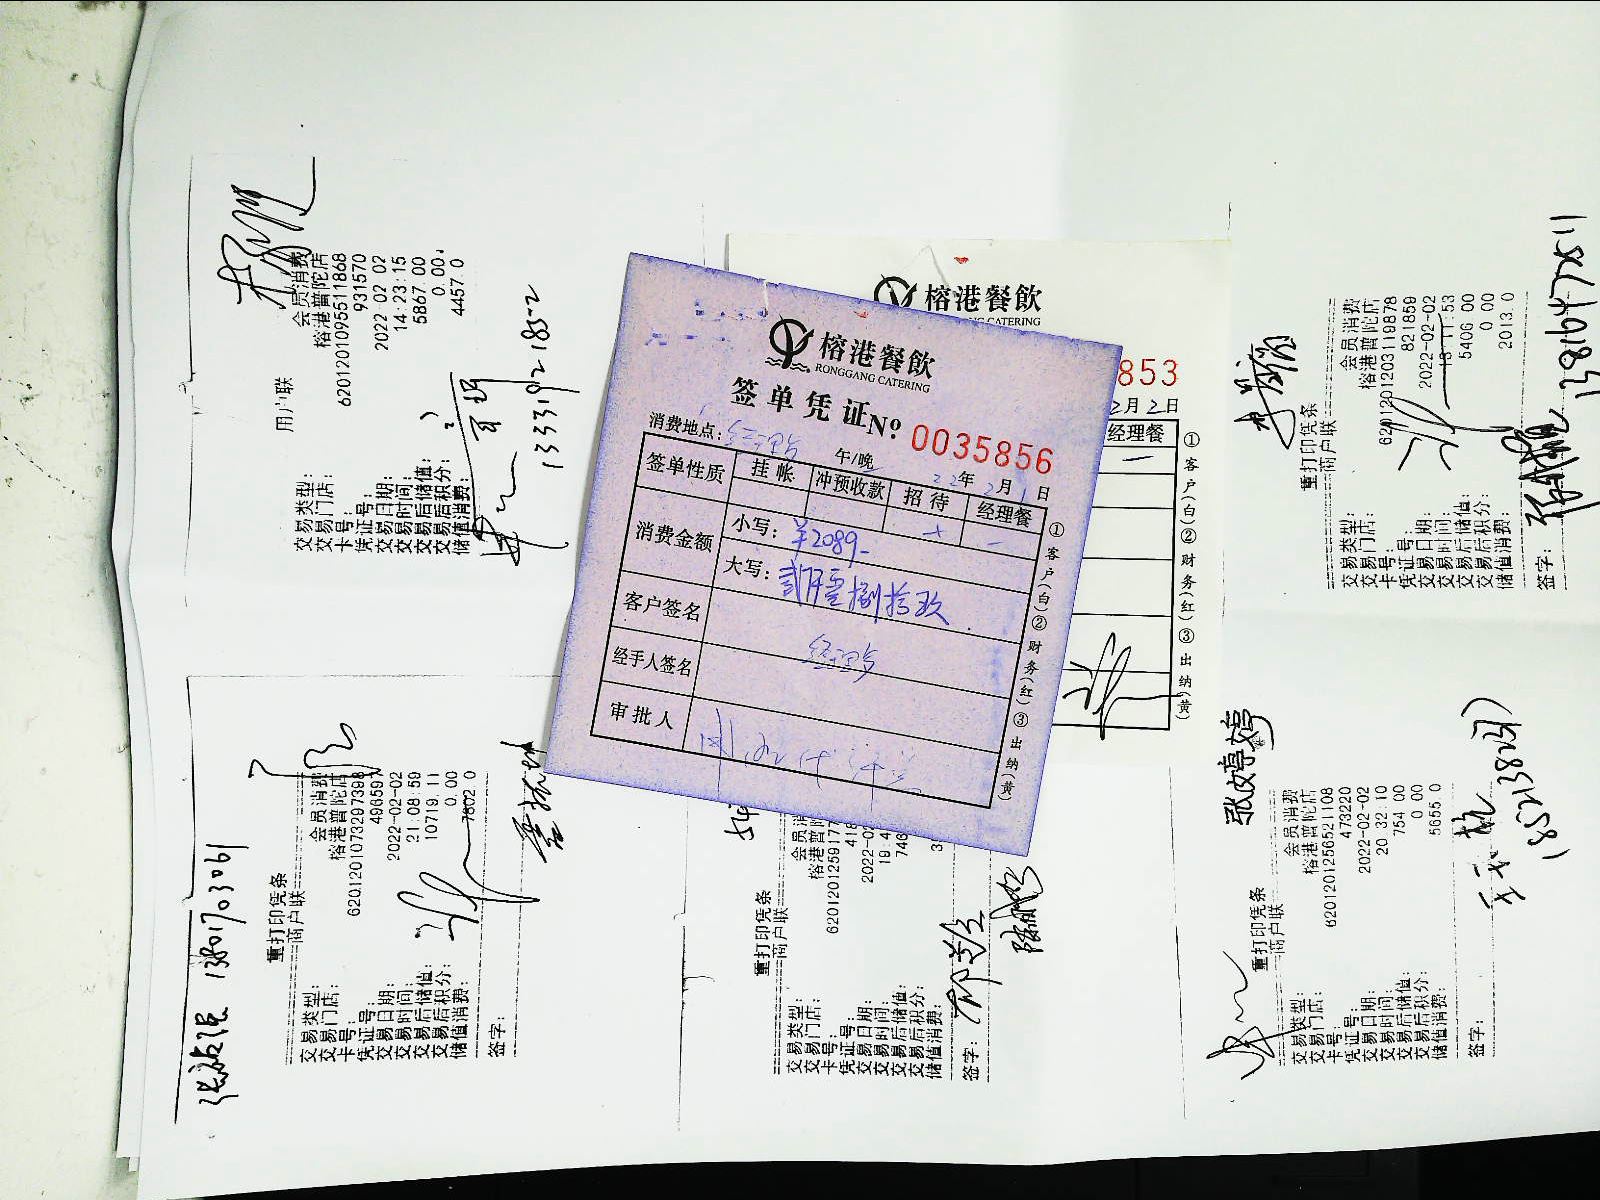 榕港餐飲
RONGGANG CATERING
签单凭证 No 0035856
消费地点: 经理房
午/晚 22年 2月 1日
签单性质 挂帐 冲预收款 招待 经理餐
消费金额 小写: ¥2089-
大写: 贰仟零捌拾玖
客户签名
经手人签名
审批人
①客户(白)②财务(红)③出纳(黄)
榕港餐飲
CATERING
853
2月2日
经理餐
①客户(白)②财务(红)③出纳(黄)
用户联
交易类型: 会员消费
交易门店: 榕港普陀店
卡号: 6201201095511868
凭证号: 931570
交易日期: 2022-02-02
交易时间: 14:23:15
交易后储值: 5867.00
交易后积分: 0.00
储值消费: 4457.0
13331921852
重打印凭条
商户联
交易类型: 会员消费
交易门店: 榕港普陀店
卡号: 6201201203119878
凭证号: 821859
交易日期: 2022-02-02
交易时间: 18:11:53
交易后储值: 5406.00
交易后积分: 0.00
储值消费: 2013.0
签字:
13816477511
13801703061
重打印凭条
商户联
交易类型: 会员消费
交易门店: 榕港普陀店
卡号: 6201201073297398
凭证号: 496597
交易日期: 2022-02-02
交易时间: 21:08:59
交易后储值: 10719.11
交易后积分: 0.00
储值消费: 7802.0
签字:
重打印凭条
商户联
交易类型: 会员消费
交易门店: 榕港普陀
卡号: 6201201259177
凭证号: 418
交易日期: 2022-02
交易时间: 19:4
交易后储值: 746
交易后积分:
储值消费: 3
签字:
张婷婷
重打印凭条
商户联
交易类型: 会员消费
交易门店: 榕港普陀店
卡号: 6201201256521108
凭证号: 473220
交易日期: 2022-02-02
交易时间: 20:32:10
交易后储值: 754.00
交易后积分: 0.00
储值消费: 5655.0
签字: